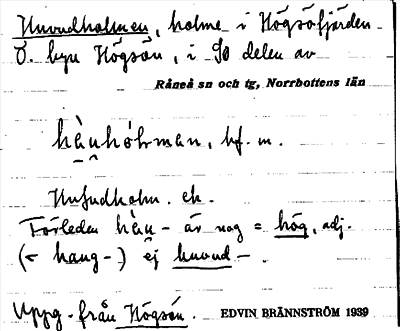 Huvudholmen, holme i Högsöfjärden
Ö. byn Högsön, i SO delen av
Råneå sn och tg, Norrbottens län
hàuhólman, bf. m.
Hufudholm. ek.
Förleden hàu- är nog = hög, adj.
(< haug-) ej huvud-.
Uppg. från Högsön. EDVIN BRÄNNSTRÖM 1939